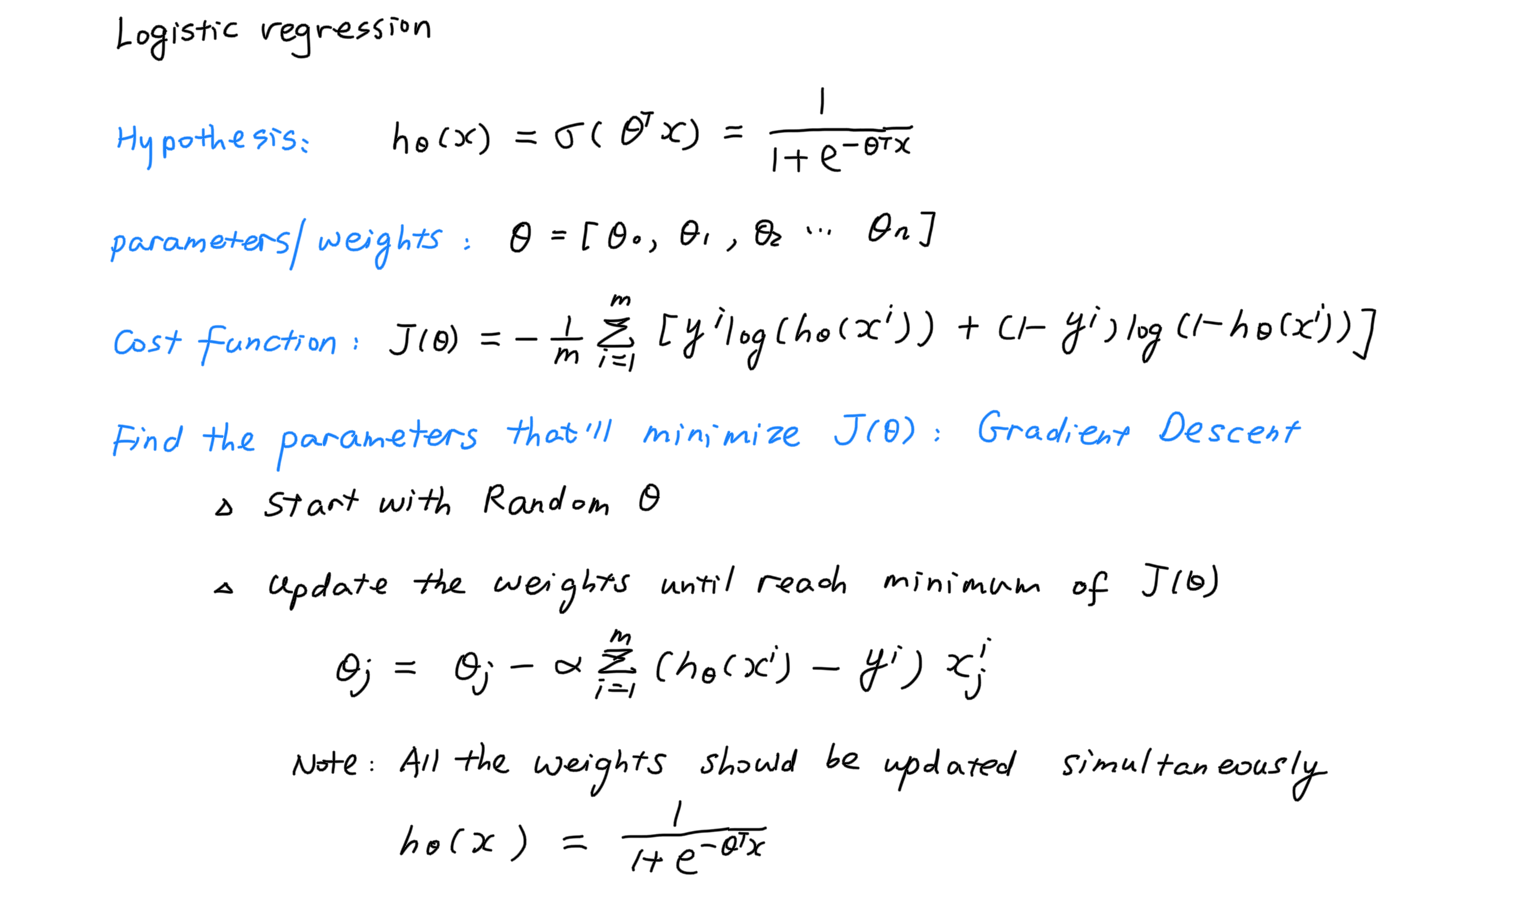 Logistic regression
Hypothesis: hθ(x) = σ(θᵀx) = 1 / (1 + e^(-θᵀx))
parameters/weights: θ = [θ₀, θ₁, θ₂ ... θn]
Cost function: J(θ) = - 1/m Σ_{i=1}^{m} [yⁱlog(hθ(xⁱ)) + (1 - yⁱ)log(1 - hθ(xⁱ))]
Find the parameters that'll minimize J(θ): Gradient Descent
▵ Start with Random θ
▵ update the weights until reach minimum of J(θ)
θj = θj - α Σ_{i=1}^{m} (hθ(xⁱ) - yⁱ) xⱼⁱ
Note: All the weights should be updated simultaneously
hθ(x) = 1 / (1 + e^(-θᵀx))